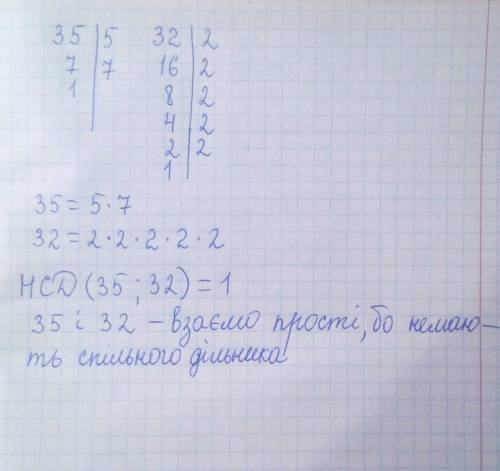 35 | 5   32 | 2
7 | 7   16 | 2
1 |   8 | 2
4 | 2
2 | 2
1 |
35 = 5 · 7
32 = 2 · 2 · 2 · 2 · 2
НСД (35 ; 32) = 1
35 і 32 – взаємо прості, бо немаю-
ть спільного дільника